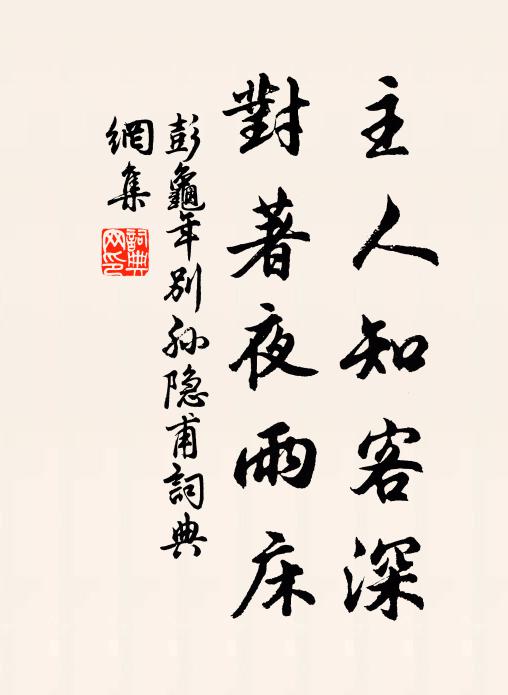 主人知客深
對著夜雨床
彭龜年別孫隐甫詞典
網集
詞典
网印